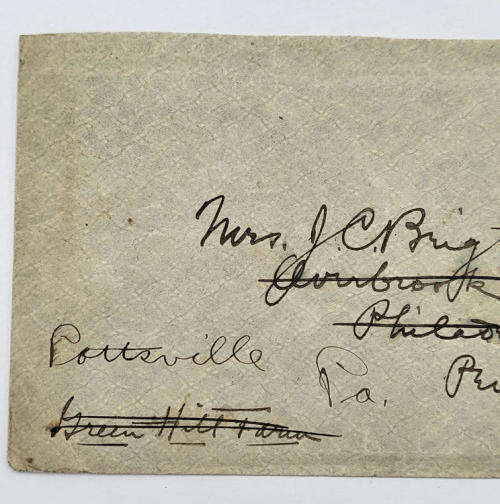 Mrs. J. C. Brig
Overbrook
Philad
Pottsville
Pa.
Pen
Green Hill Farm